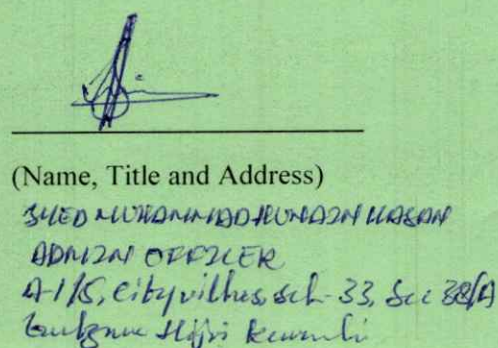 (Name, Title and Address)
SYED MUHAMMAD HUNAIN HASAN
ADMIN OFFICER
A-1/5, City villas, sch-33, Sec 38/A